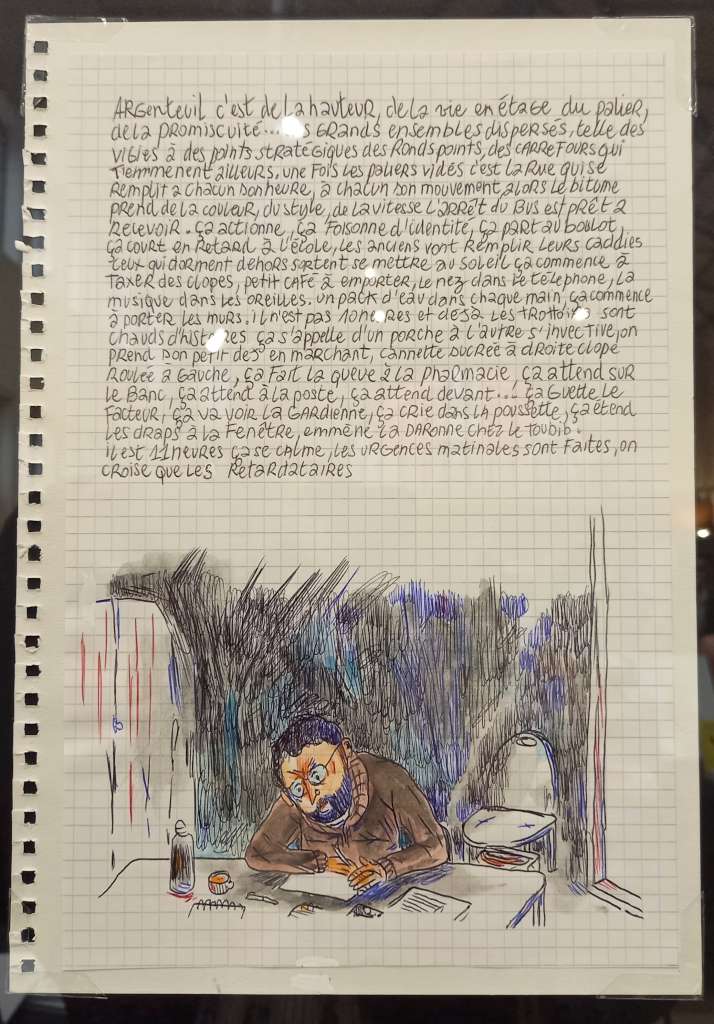 ARGenteuil c'est de la hauteur, de la vie en étage du palier,
de la promiscuité... GRANDS ensembles dispersés, telle des
vigies à des points stratégiques des Ronds points, des CARREFOURS qui
t'emmenent ailleurs, une fois les paliers vidés c'est la Rue qui se
Remplit à chacun son heure, à chacun son mouvement alors le bitume
prend de la couleur, du style, de la vitesse L'ARRÊT du Bus est prêt à
Recevoir. ça actionne, ça foisonne d'identité, ça part au boulot,
ça court en Retard à l'école, les anciens vont Remplir Leurs caddies
ceux qui dorment dehors sortent se mettre au soleil ça commence à
Taxer des clopes, petit café à emporter, le nez dans le téléphone, la
musique dans les oreilles. un pack d'eau dans chaque main, ça commence
à porter les murs. il n'est pas 10 heures et déjà les trottoirs sont
chauds d'histoires ça s'appelle d'un porche à l'autre s'invective, on
prend son petit dej en marchant, cannette sucrée à droite clope
Roulée à Gauche, ça fait la queue à la pharmacie, ça attend sur
le Banc, ça attend à la poste, ça attend devant... ça Guette le
facteur, ça va voir la GARdienne, ça crie dans la poussette, ça étend
les draps à la fenêtre, emmène la DARONNE chez le toubib.
il est 11 heures ça se calme, les URGences matinales sont faites, on
croise que les Retardataires